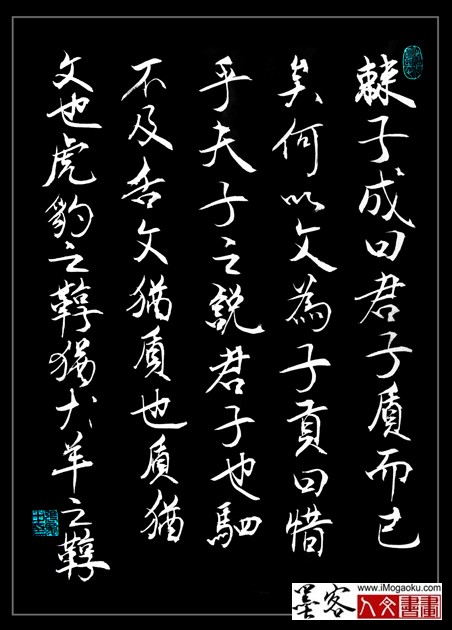 棘子成曰君子质而已
矣何以文為子貢曰惜
乎夫子之說君子也駟
不及舌文猶质也质猶
文也虎豹之鞟猶犬羊之鞟
www.iMogaoku.com
墨客
人文書畫